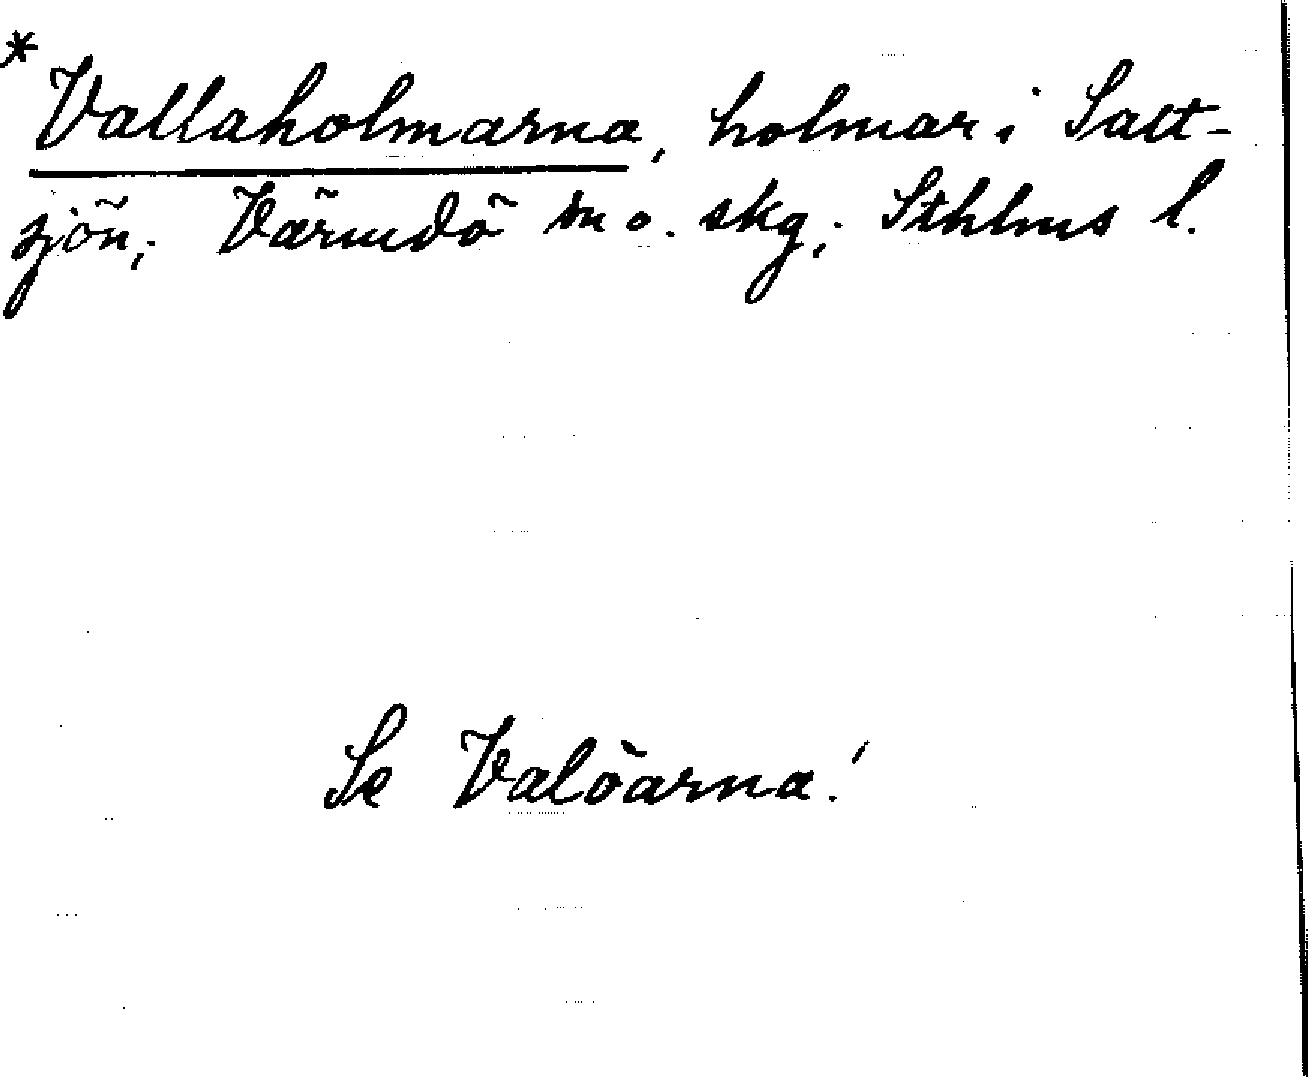 * Vallaholmarna, holmar i Salt-
sjön; Värmdö m o. skg; Sthlms l.
Se Valöarna!